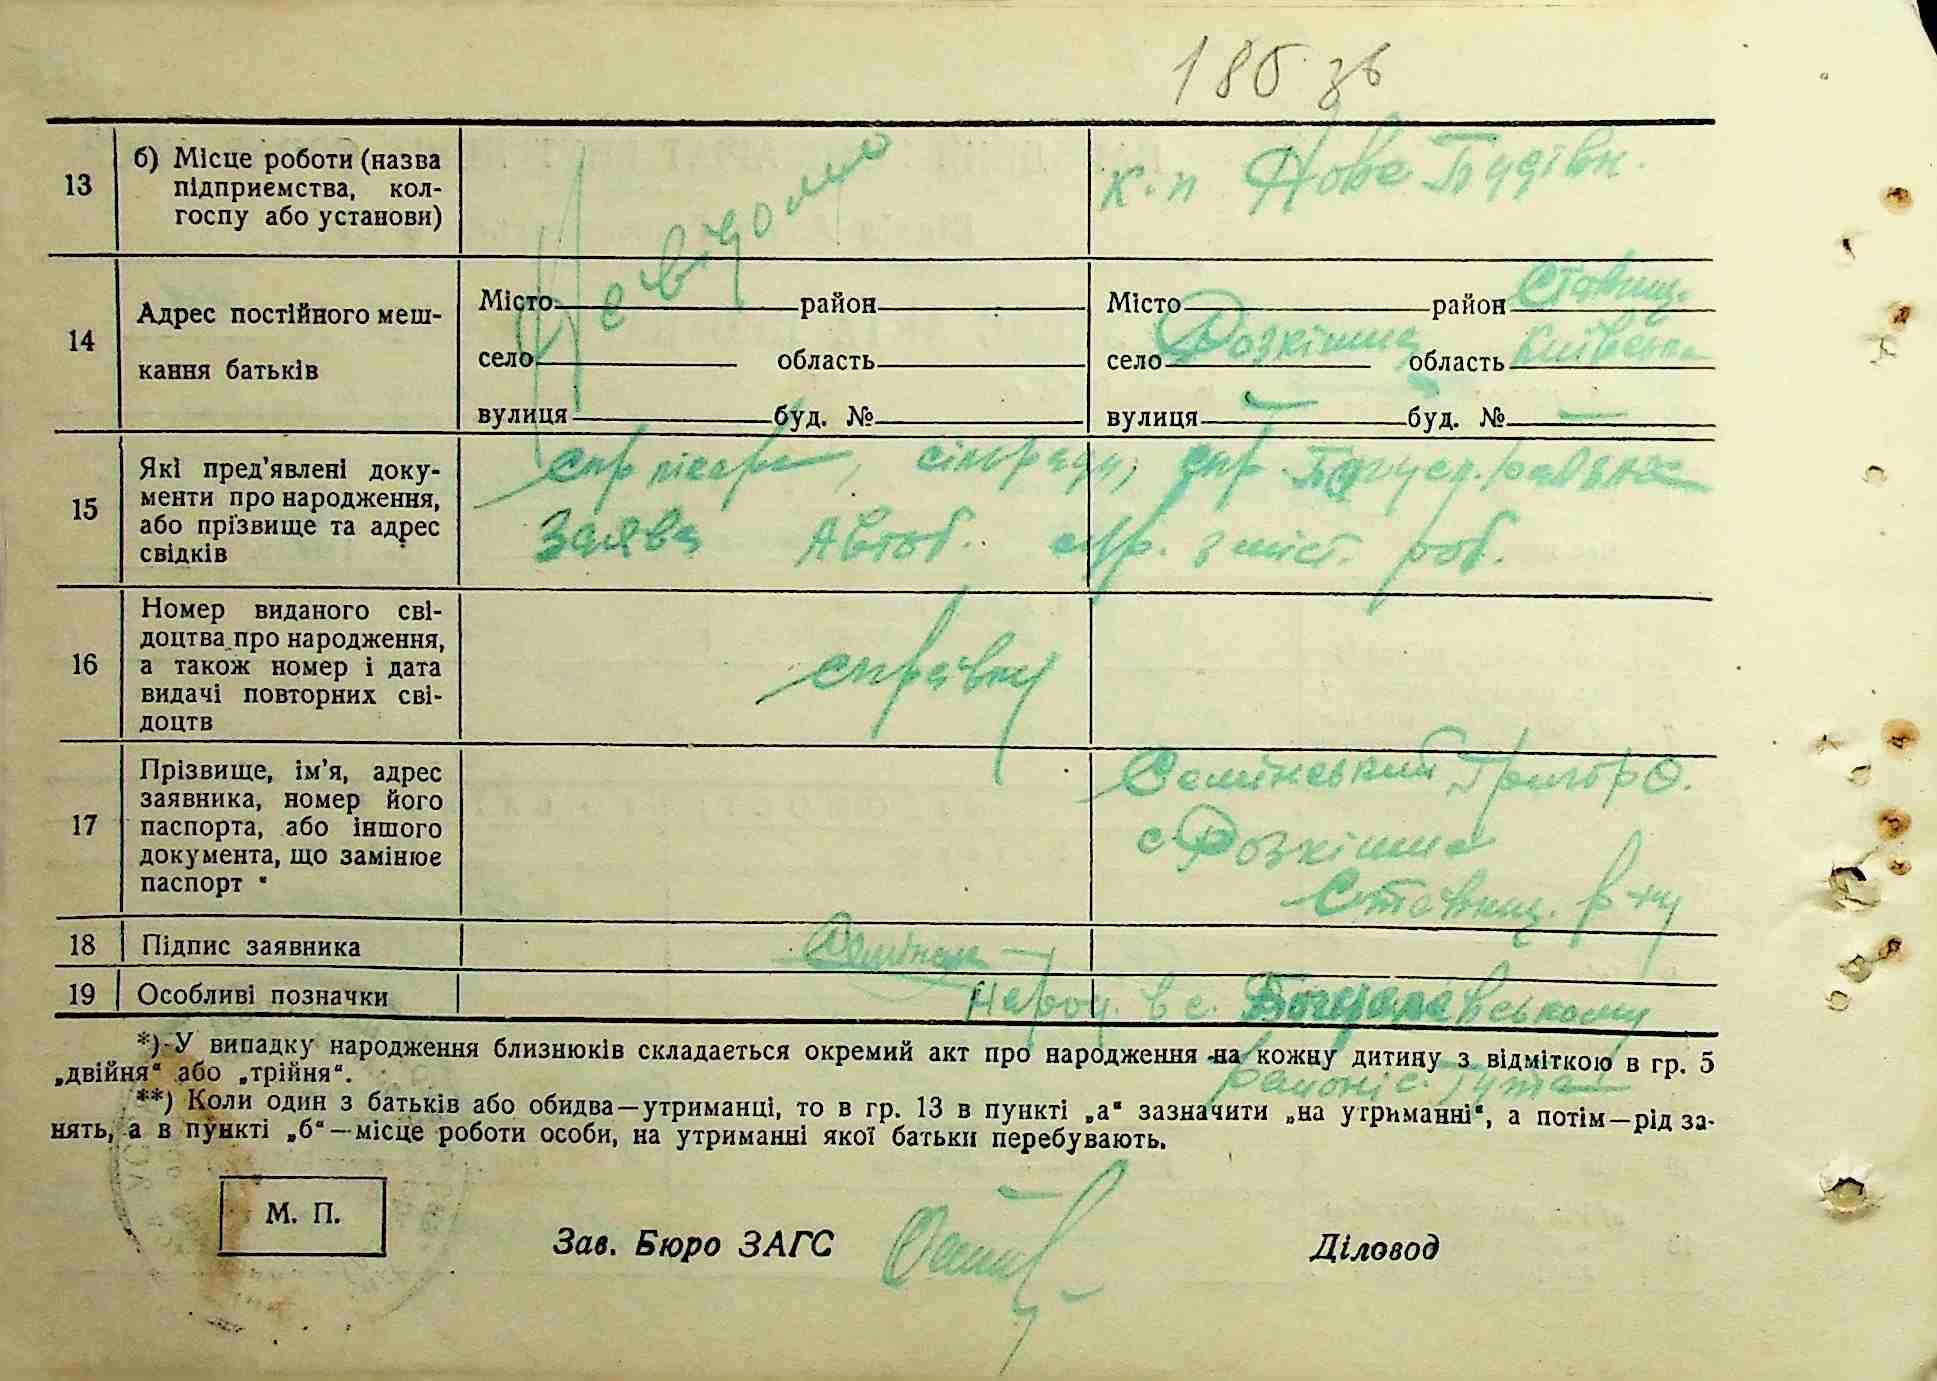 186 зв
13
б) Місце роботи (назва
підприємства, кол-
госпу або установи)
Невідомо
к-п Нове Будівн.
14
Адрес постійного меш-
кання батьків
Місто район
село область
вулиця буд. №
Місто район Ставищ.
село Розкішна область Київська
вулиця — буд. № —
15
Які пред'явлені доку-
менти про народження,
або прізвище та адрес
свідків
спр лікаря, сільради, спр.
Заява Автоб. спр. з міст. роб.
16
Номер виданого сві-
доцтва про народження,
а також номер і дата
видачі повторних сві-
доцтв
справку
17
Прізвище, ім'я, адрес
заявника, номер його
паспорта, або іншого
документа, що замінює
паспорт *
Семінський Григор О.
с Розкішна
Ставищ. р-ну
18
Підпис заявника
19
Особливі позначки
Народ. в с.
районі с. Гута
*) У випадку народження близнюків складається окремий акт про народження на кожну дитину з відміткою в гр. 5
„двійня" або „трійня".
**) Коли один з батьків або обидва—утриманці, то в гр. 13 в пункті „а" зазначити „на утриманні", а потім—рід за-
нять, а в пункті „б"—місце роботи особи, на утриманні якої батьки перебувають.
М. П.
Зав. Бюро ЗАГС
Діловод